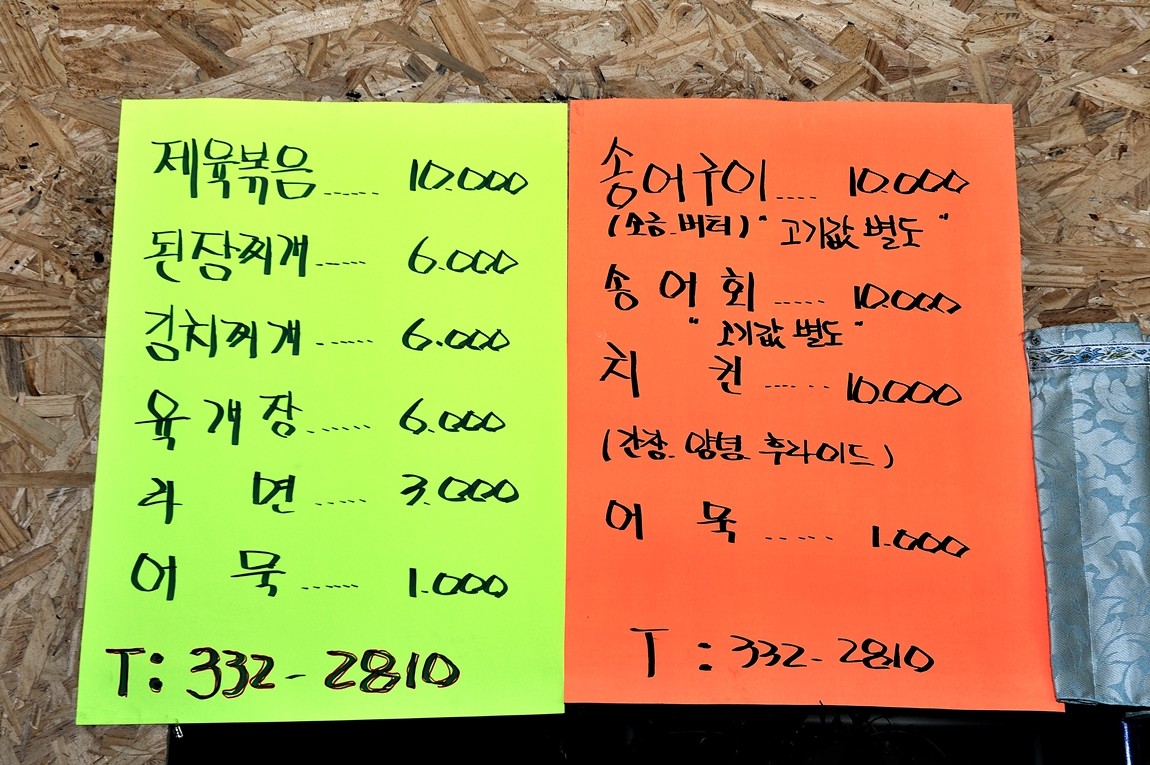 제육볶음...... 10.000
된장찌개...... 6.000
김치찌개...... 6.000
육개장...... 6.000
라면...... 3.000
어묵...... 1.000
T: 332-2810
송어구이.... 10.000
(소금.버터) "고기값 별도"
송어회..... 10.000
"고기값 별도"
치킨...... 10.000
(간장.양념.후라이드)
어묵...... 1.000
T: 332-2810